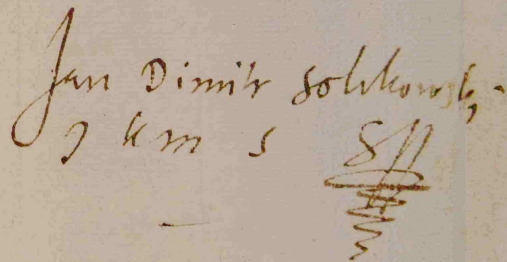 Jan Dimitr Solikowski
J k m s